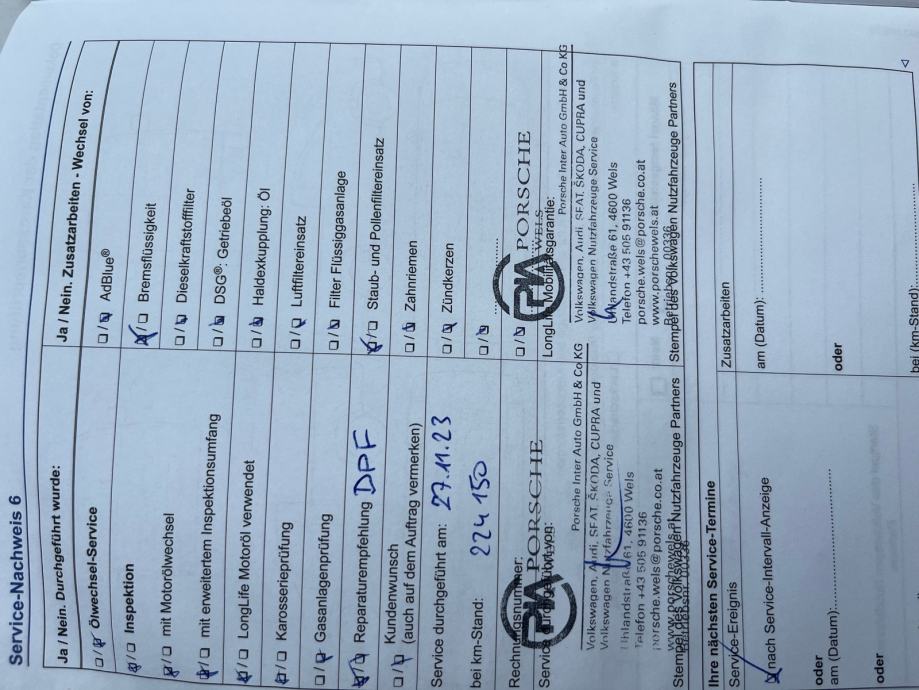 Service-Nachweis 6
Ja / Nein. Durchgeführt wurde:
Ölwechsel-Service
Inspektion
mit Motorölwechsel
mit erweitertem Inspektionsumfang
LongLife Motoröl verwendet
Karosserieprüfung
Gasanlagenprüfung
Reparaturempfehlung DPF
Kundenwunsch
(auch auf dem Auftrag vermerken)
Service durchgeführt am: 27.11.23
bei km-Stand: 224 150
Rechnungsnummer:
PORSCHE
Porsche Inter Auto GmbH & Co KG
Volkswagen, Audi, SEAT, ŠKODA, CUPRA und
Volkswagen Nutzfahrzeuge Service
Uhlandstraße 61, 4600 Wels
Telefon +43 505 91136
porsche.wels@porsche.co.at
www.porschewels.at
Stempel des Volkswagen Nutzfahrzeuge Partners
Ja / Nein. Zusatzarbeiten - Wechsel von:
AdBlue®
Bremsflüssigkeit
Dieselkraftstofffilter
DSG®: Getriebeöl
Haldexkupplung: Öl
Luftfiltereinsatz
Filter Flüssiggasanlage
Staub- und Pollenfiltereinsatz
Zahnriemen
Zündkerzen
LongLife Mobilitätsgarantie:
PORSCHE
WELS
Porsche Inter Auto GmbH & Co KG
Volkswagen, Audi, SEAT, ŠKODA, CUPRA und
Volkswagen Nutzfahrzeuge Service
Uhlandstraße 61, 4600 Wels
Telefon +43 505 91136
porsche.wels@porsche.co.at
www.porschewels.at
Stempel des Volkswagen Nutzfahrzeuge Partners
Ihre nächsten Service-Termine
Service-Ereignis
nach Service-Intervall-Anzeige
oder
am (Datum):
oder
Zusatzarbeiten
am (Datum):
oder
bei (km-Stand):